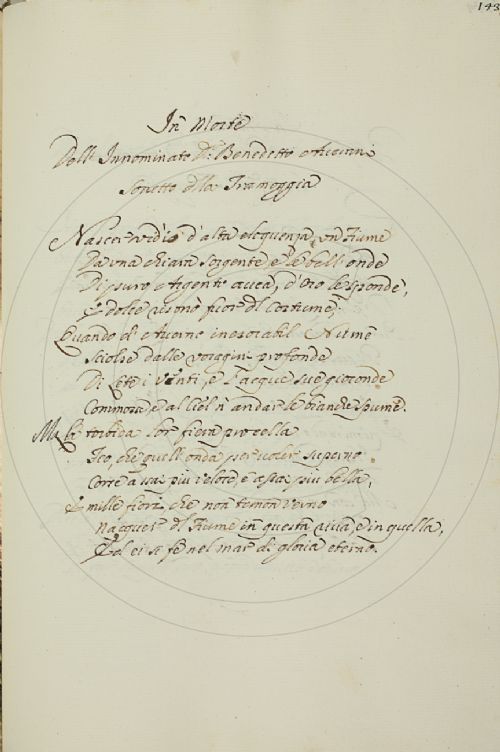 143
In Morte
Dell' Innominato D. Benedetto Averani
Sonetto della Tramoggia
Nascer ved'io d'alta eloquenza un Fiume
Da una chiara sorgente, e le bell'onde
Di puro Argento avea, d'Oro le sponde,
E dolce risonò fuor del costume;
Quando d'Averno inesorabil Nume
Sciolse dalle voragini profonde
Di Lete i Vanti, e l'acque sue gioconde
Commosse, e al Ciel n'andar le bianche spume.
Ma la torbida lor fiera procella
Feo, che quell'onda per voler superno
Corre assai più veloce, e assai più bella,
E mille fiori che non temon verno
Nacquer del Fiume in questa riva, e in quella,
Ed ei si fè nel mar di gloria eterno.